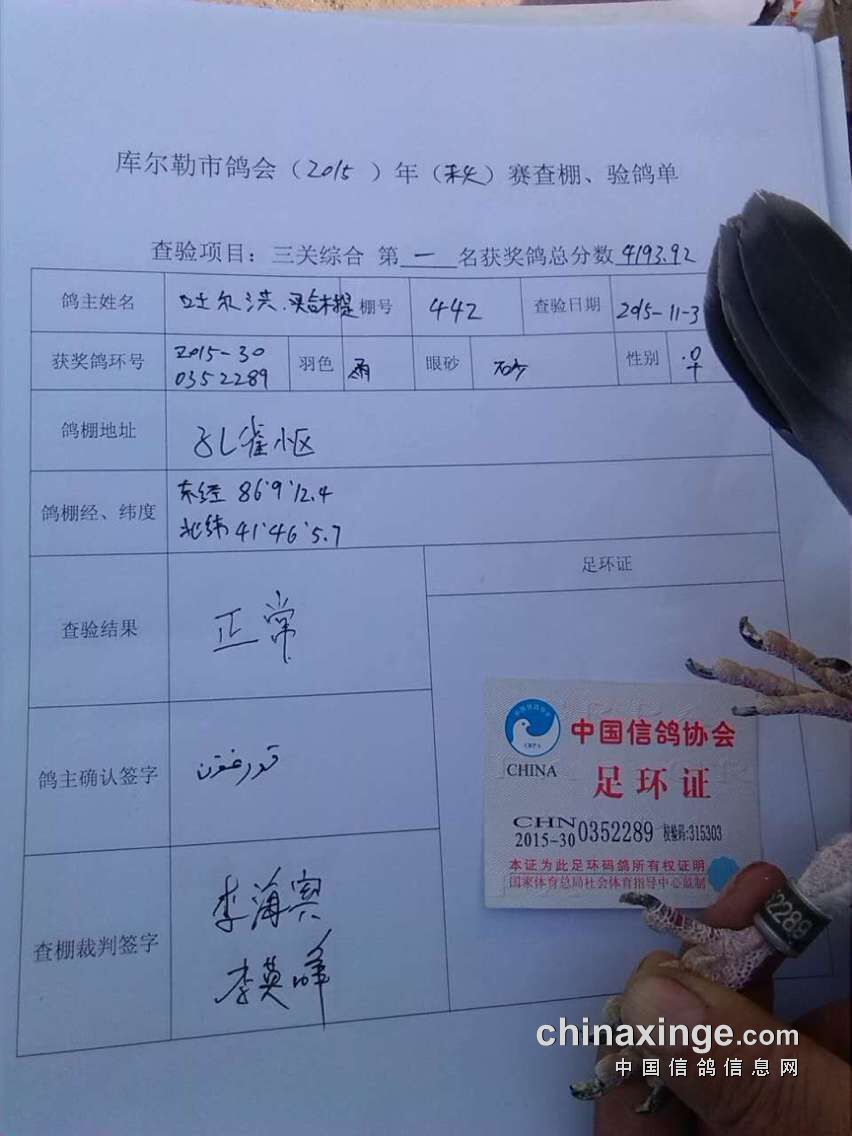 库尔勒市鸽会（2015）年（秋）赛查棚、验鸽单
查验项目：三关综合 第一名获奖鸽总分数4193.92
鸽主姓名 吐尔洪. 棚号 442 查验日期 2015-11-3
获奖鸽环号 2015-30 0352289 羽色 雨 眼砂 砂 性别 ♀
鸽棚地址 孔雀小区
鸽棚经、纬度 东经 86°9'12.4
北纬 41°46'5.7
足环证
查验结果 正常
鸽主确认签字
查棚裁判签字 李海宾
李英峰
中国信鸽协会
CHINA
足环证
CHN
2015-30 0352289 校验码:315303
本证为此足环码鸽所有权证明
国家体育总局社会体育指导中心监制
chinaxinge.com
中国信鸽信息网